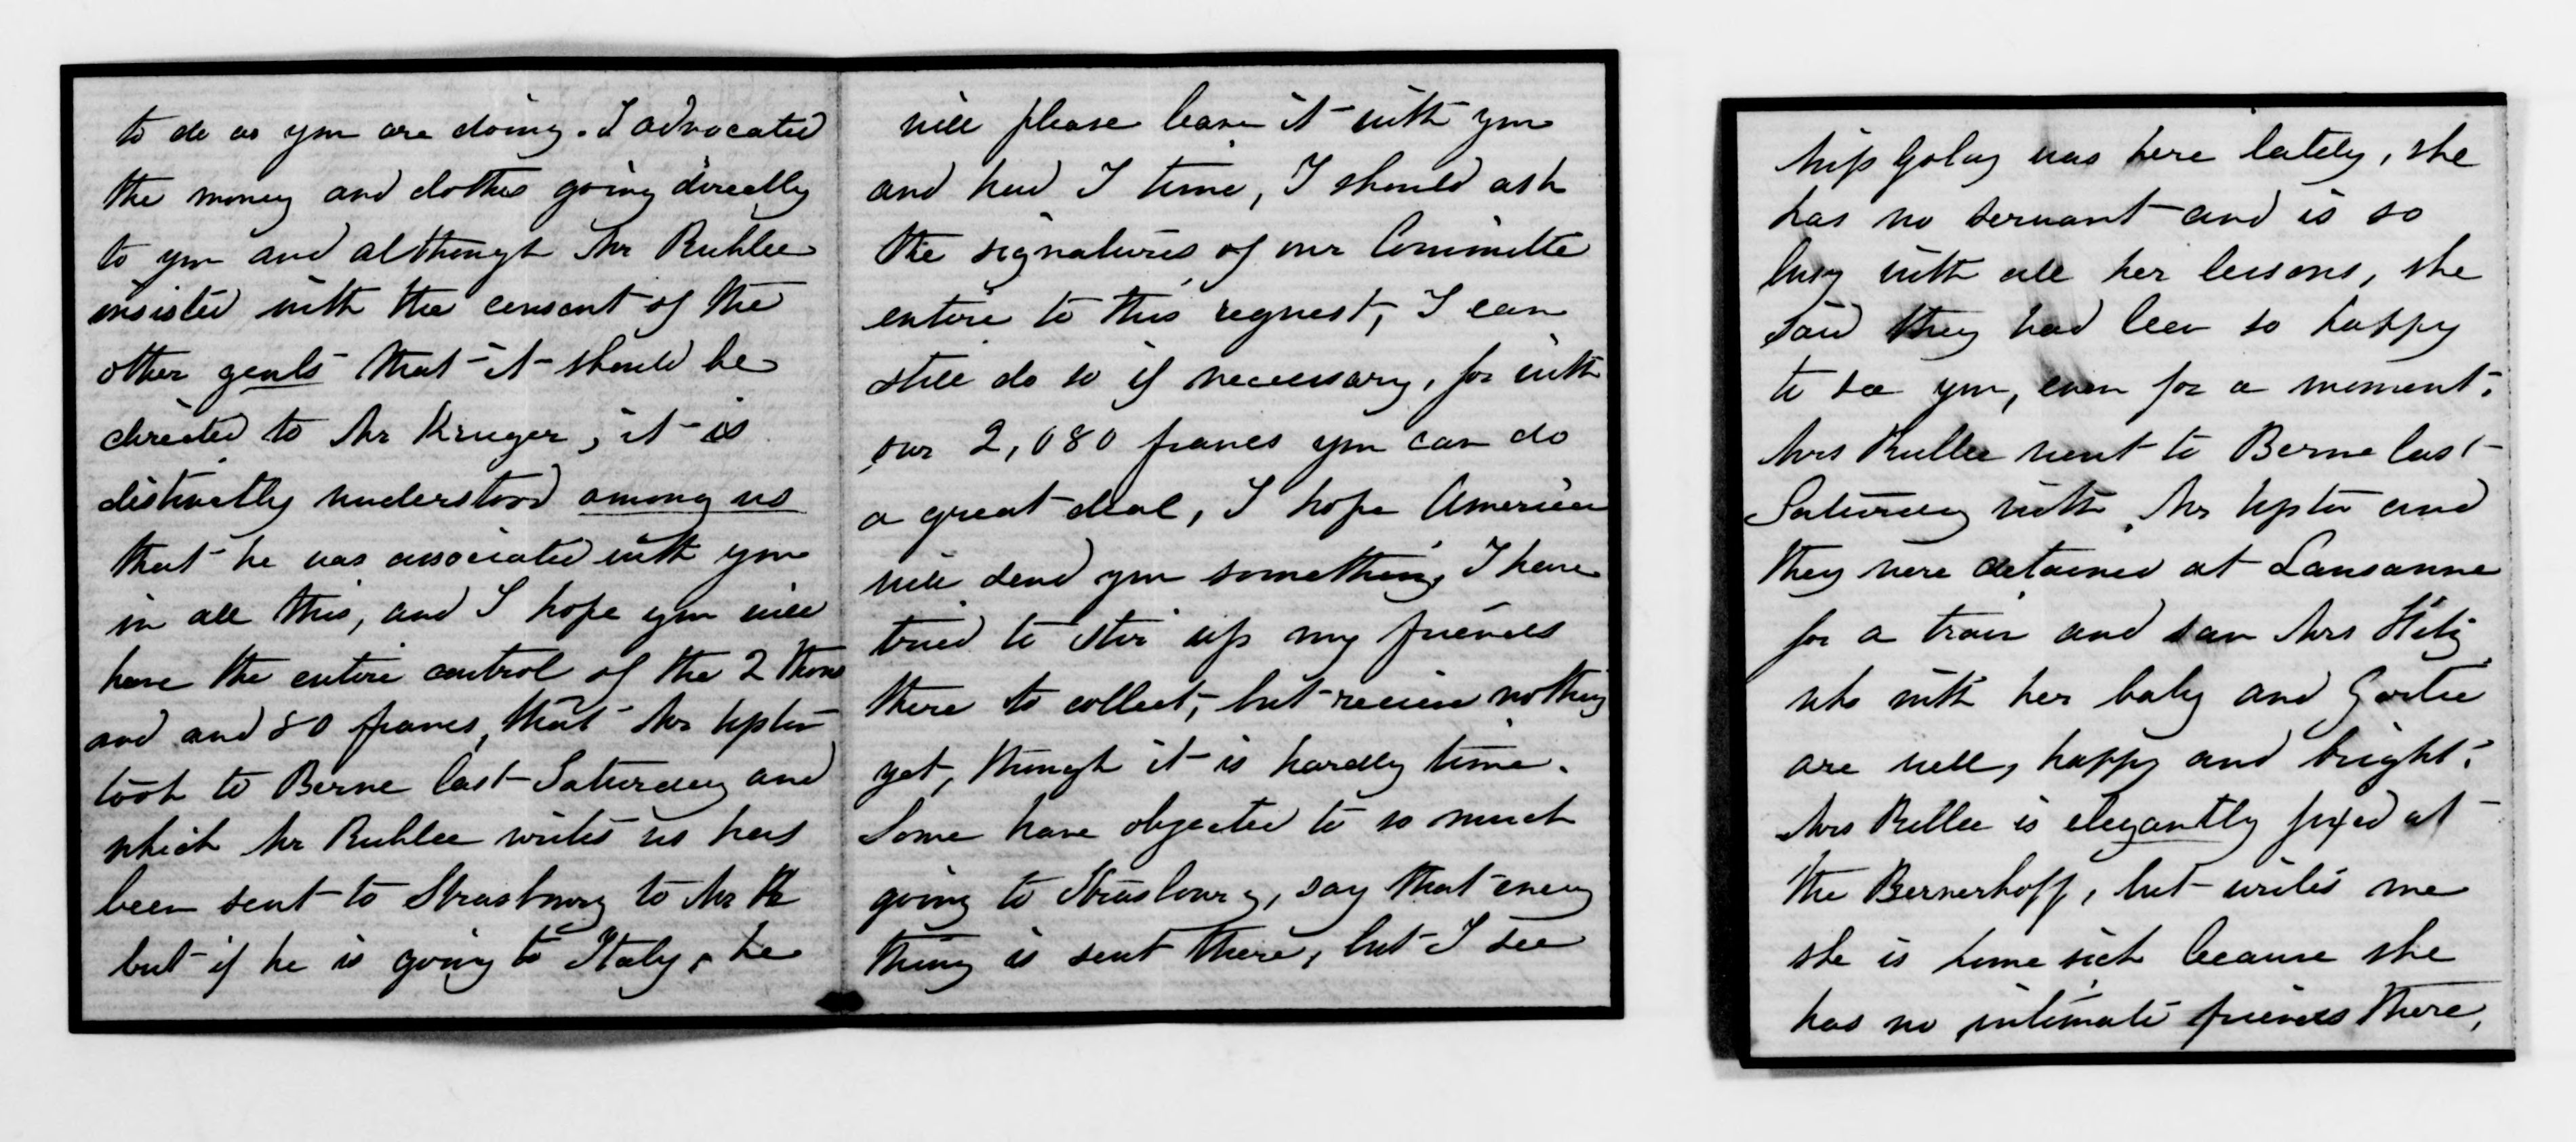 to do as you are doing. I advocated
the money and clothes going directly
to you and although Mr Rublee
insisted with the consent of the
other gents that it should be
directed to Mr Kruger, it is
distinctly understood among us
that he was associated with you
in all this, and I hope you will
have the entire control of the 2 thous
and and 80 francs, that Mr Upton
took to Berne last Saturday and
which Mr Rublee writes us has
been sent to Strasbourg to Mr K
but if he is going to Italy, he
will please leave it with you
and had I time, I should ask
the signatures of our Committe
entire to this request, I can
still do so if necessary, for with
our 2,080 francs you can do
a great deal, I hope America
will send you something, I have
tried to stir up my friends
there to collect, but receive nothing
yet, though it is hardly time.
Some have objected to so much
going to Strasbourg, say that every
thing is sent there, but I see
Miss Golay was here lately, she
has no servant and is so
busy with all her lessons, she
said they had been so happy
to see you, even for a moment.
Mrs Rublee went to Berne last
Saturday with Mr Upton and
they were detained at Lausanne
for a train and saw Mrs Hitz
who with her baby and Gertie
are well, happy and bright.
Mrs Rublee is elegantly fixed at
the Bernerhoff, but writes me
she is home sick because she
has no intimate friends there,